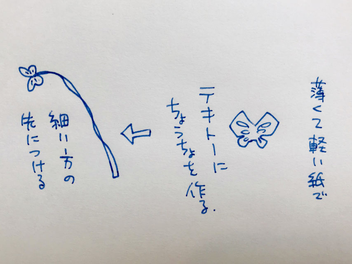 薄くて軽い紙で
テキトーに
ちょうちょを作る.
細い方の
先につける